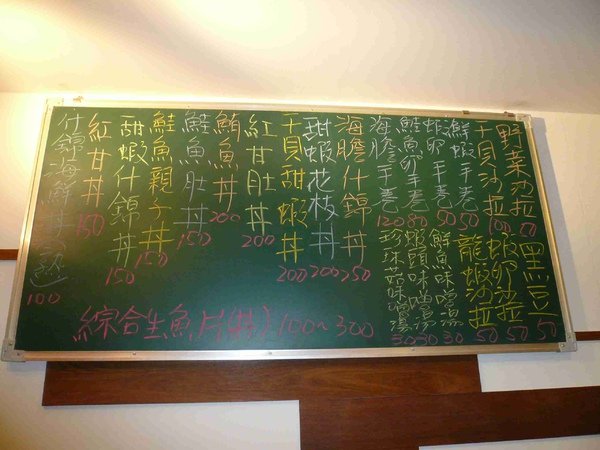 野菜沙拉 50
干貝沙拉 100
鮮蝦手卷 50
蝦卵手卷 50
鮭魚卵手卷 80
海膽手卷 120
黑豆 50
蝦卵沙拉 50
龍蝦沙拉 50
鮮魚味噌湯 30
蝦頭味噌湯 30
珍珠菇味噌湯 30
海膽什錦丼 250
甜蝦花枝丼 200
干貝甜蝦丼 200
紅甘肚丼 200
鮪魚丼 200
鮭魚肚丼 150
鮭魚親子丼 150
甜蝦什錦丼 150
紅甘丼 150
什錦海鮮丼 100
綜合生魚片 100~300